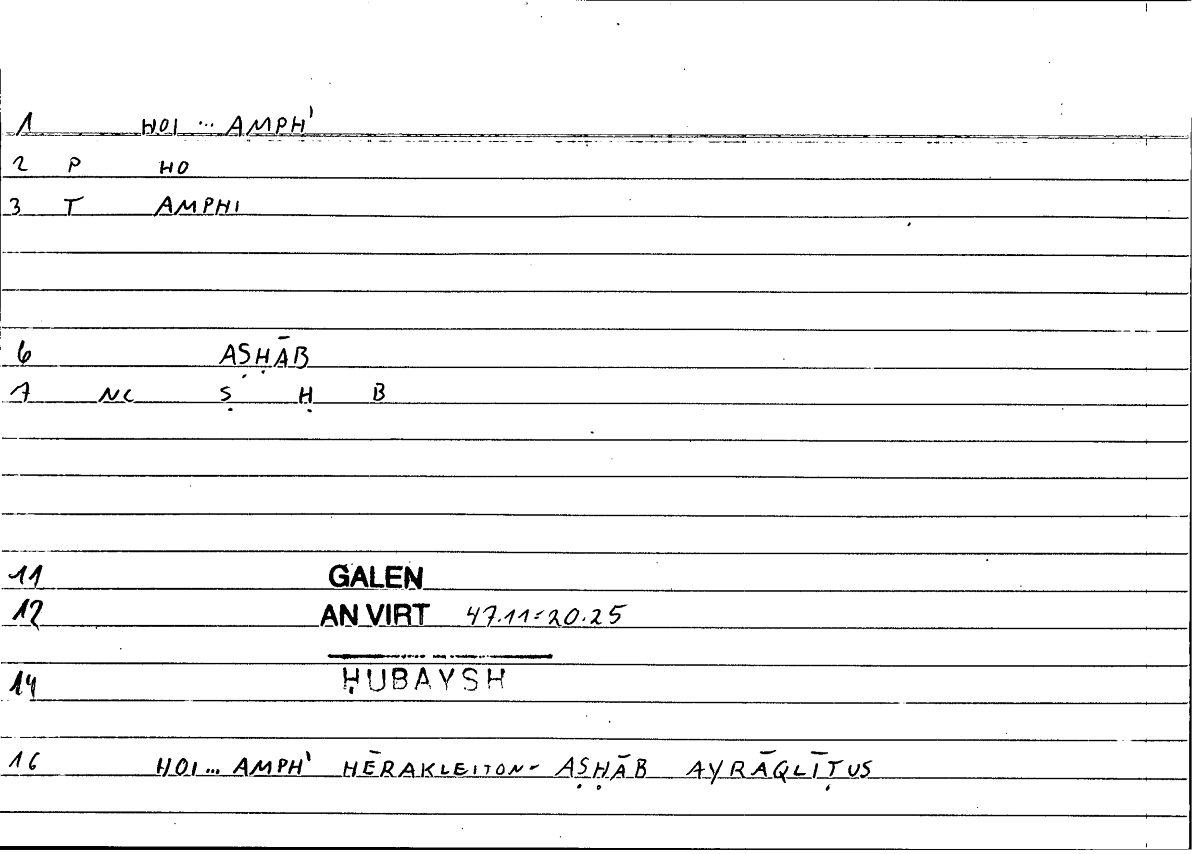 1 HOI ... AMPH'
2 P HO
3 T AMPHI
6 AṢḤĀB
7 NC Ṣ Ḥ B
11 GALEN
12 AN VIRT 47.11=20.25
14 ḤUBAYSH
16 HOI... AMPH' HĒRAKLEITON- AṢḤĀB AYRĀQLĪṬUS